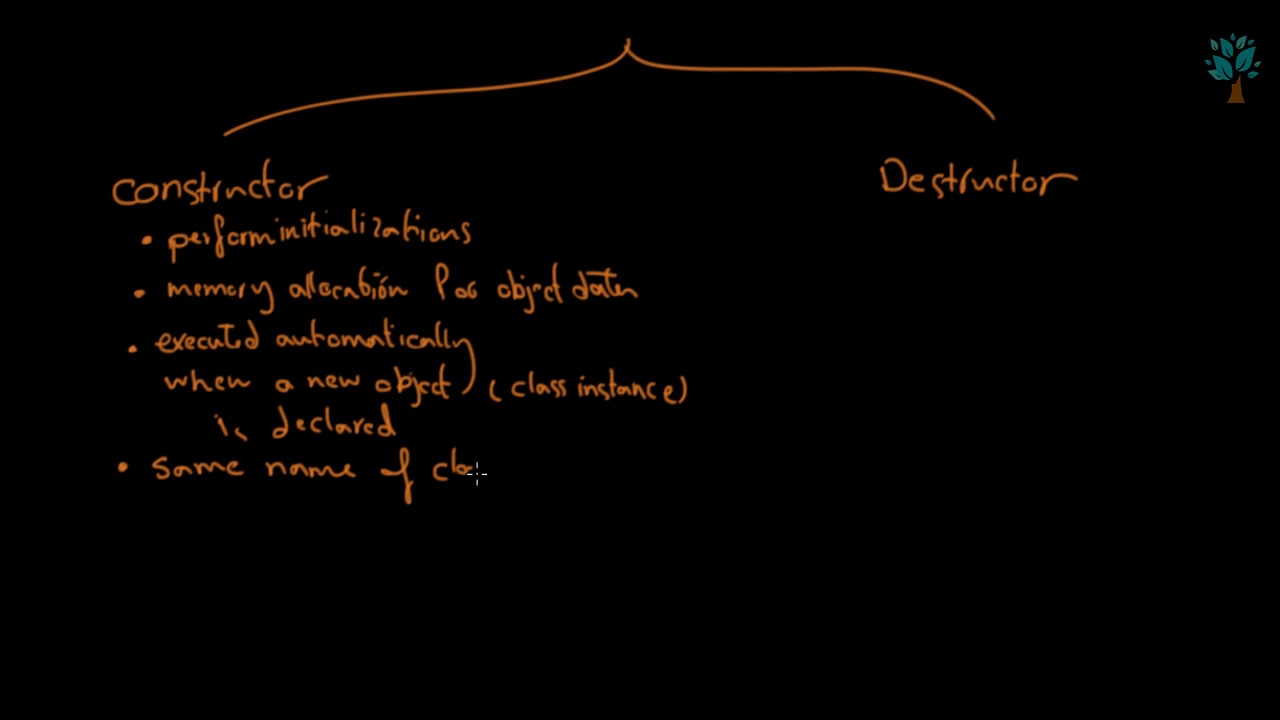 Constructor
Destructor
• perform initializations
• memory allocation for object data
• executed automatically
when a new object (class instance)
is declared
• same name of cla